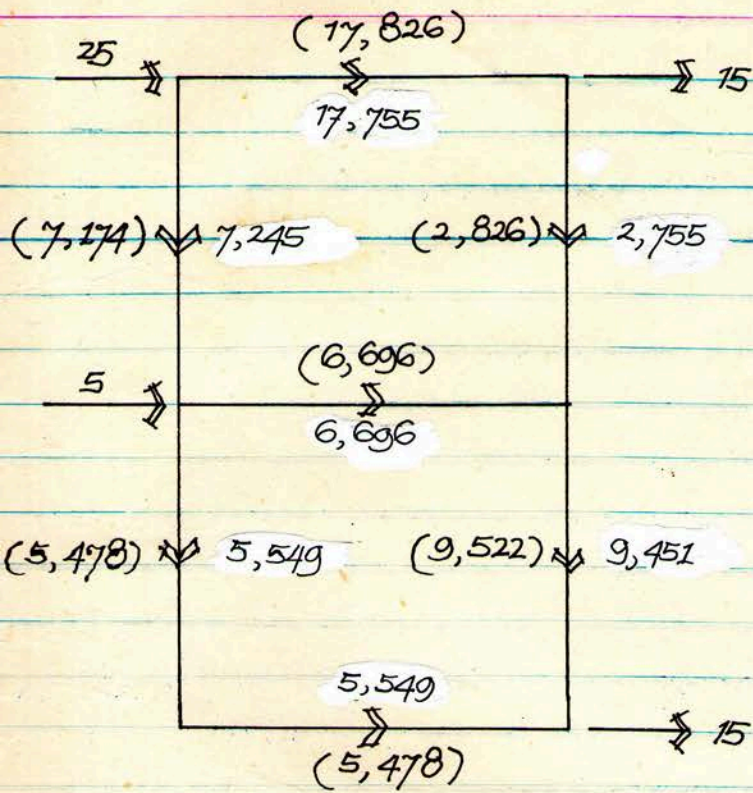 (17,826)
25
15
17,755
(7,174) 7,245 (2,826) 2,755
(6,696)
5
6,696
(5,478) 5,549 (9,522) 9,451
5,549
15
(5,478)